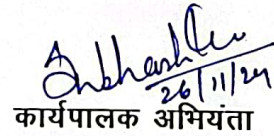 26/11/24
कार्यपालक अभियंता